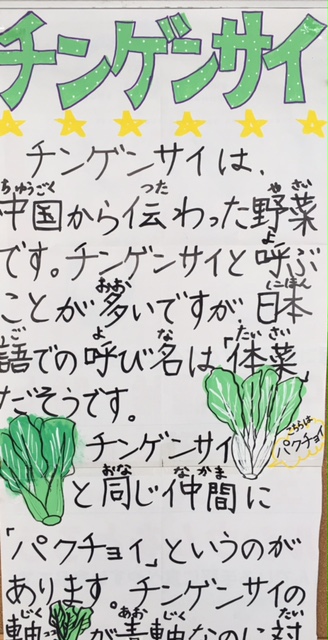 チンゲンサイ
チンゲンサイは、
ちゅうごく つた やさい
中国から伝わった野菜
よ
です。チンゲンサイと呼ぶ
おお にほん
ことが多いですが、日本
ご よ な たいさい
語での呼び名は「体菜」
だそうです。
こちらは
パクチョイ
チンゲンサイ
おな なかま
と同じ仲間に
「パクチョイ」というのが
あります。チンゲンサイの
じく あおじく たい
軸 が青軸なのに対